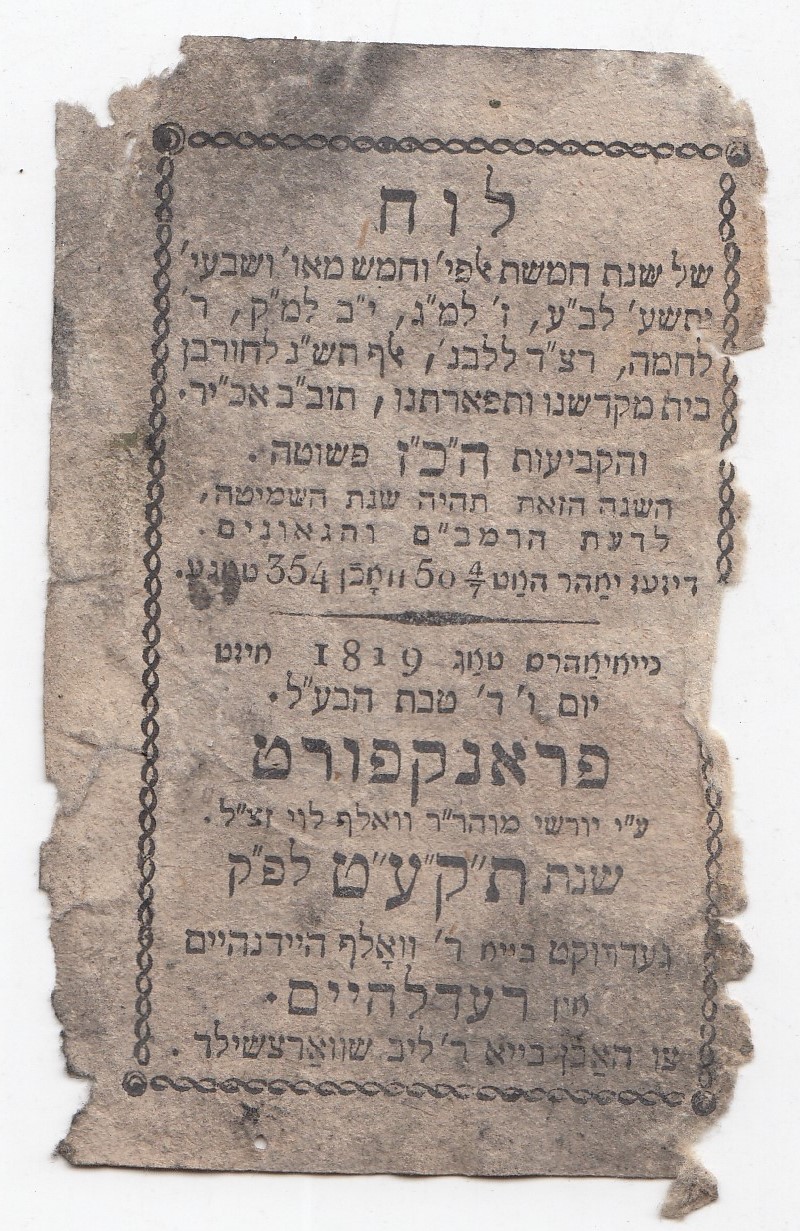 לוח
של שנת חמשת אלפי׳ וחמש מאו׳ ושבעי׳
ותשע׳ לב״ע, ז׳ למ״ג, י״ב למ״ק, ר׳
לחמה, רצ״ד ללבנ׳, אלף תש״נ לחורבן
בית מקדשנו ותפארתנו, תוב״ב אכי״ר.
והקביעות ה״כ״ז פשוטה.
השנה הזאת תהיה שנת השמיטה,
לדעת הרמב״ם והגאונים.
דיזעז יאהר האט 50 4/7 וואכן 354 טאגע.
נייאיאהרס טאג 1819 אינט
יום ו׳ ד׳ טבת הבע״ל.
פראנקפורט
ע״י יורשי מוהר״ר וואלף לוי זצ״ל.
שנת ת״ק״ע״ט לפ״ק
געדרוקט בייא ר׳ וואָלף היידנהיים
אין רעדלהיים.
צו האבן בייא ר׳ ליב שווארצשילד.